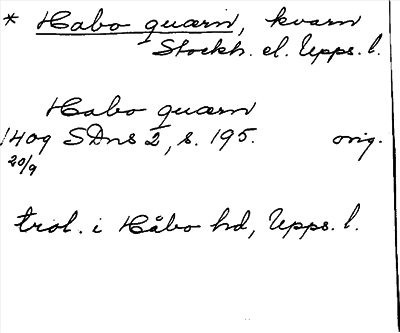 * Habo quærn, kvarn
Stockh. el. Upps. l.
Habo quærn
1409 SDns 2, s. 195. orig.
20/9
trol. i Håbo hd, Upps. l.